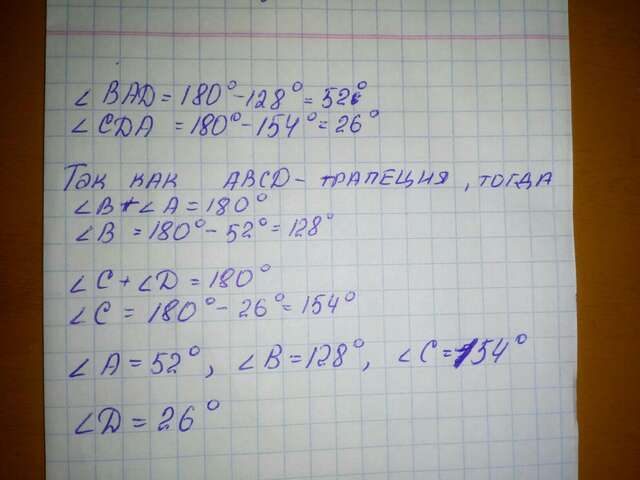 ∠ BAD = 180° - 128° = 52°
∠ CDA = 180° - 154° = 26°
Так как ABCD - трапеция, тогда
∠B + ∠A = 180°
∠B = 180° - 52° = 128°
∠C + ∠D = 180°
∠C = 180° - 26° = 154°
∠A = 52°, ∠B = 128°, ∠C = 154°
∠D = 26°